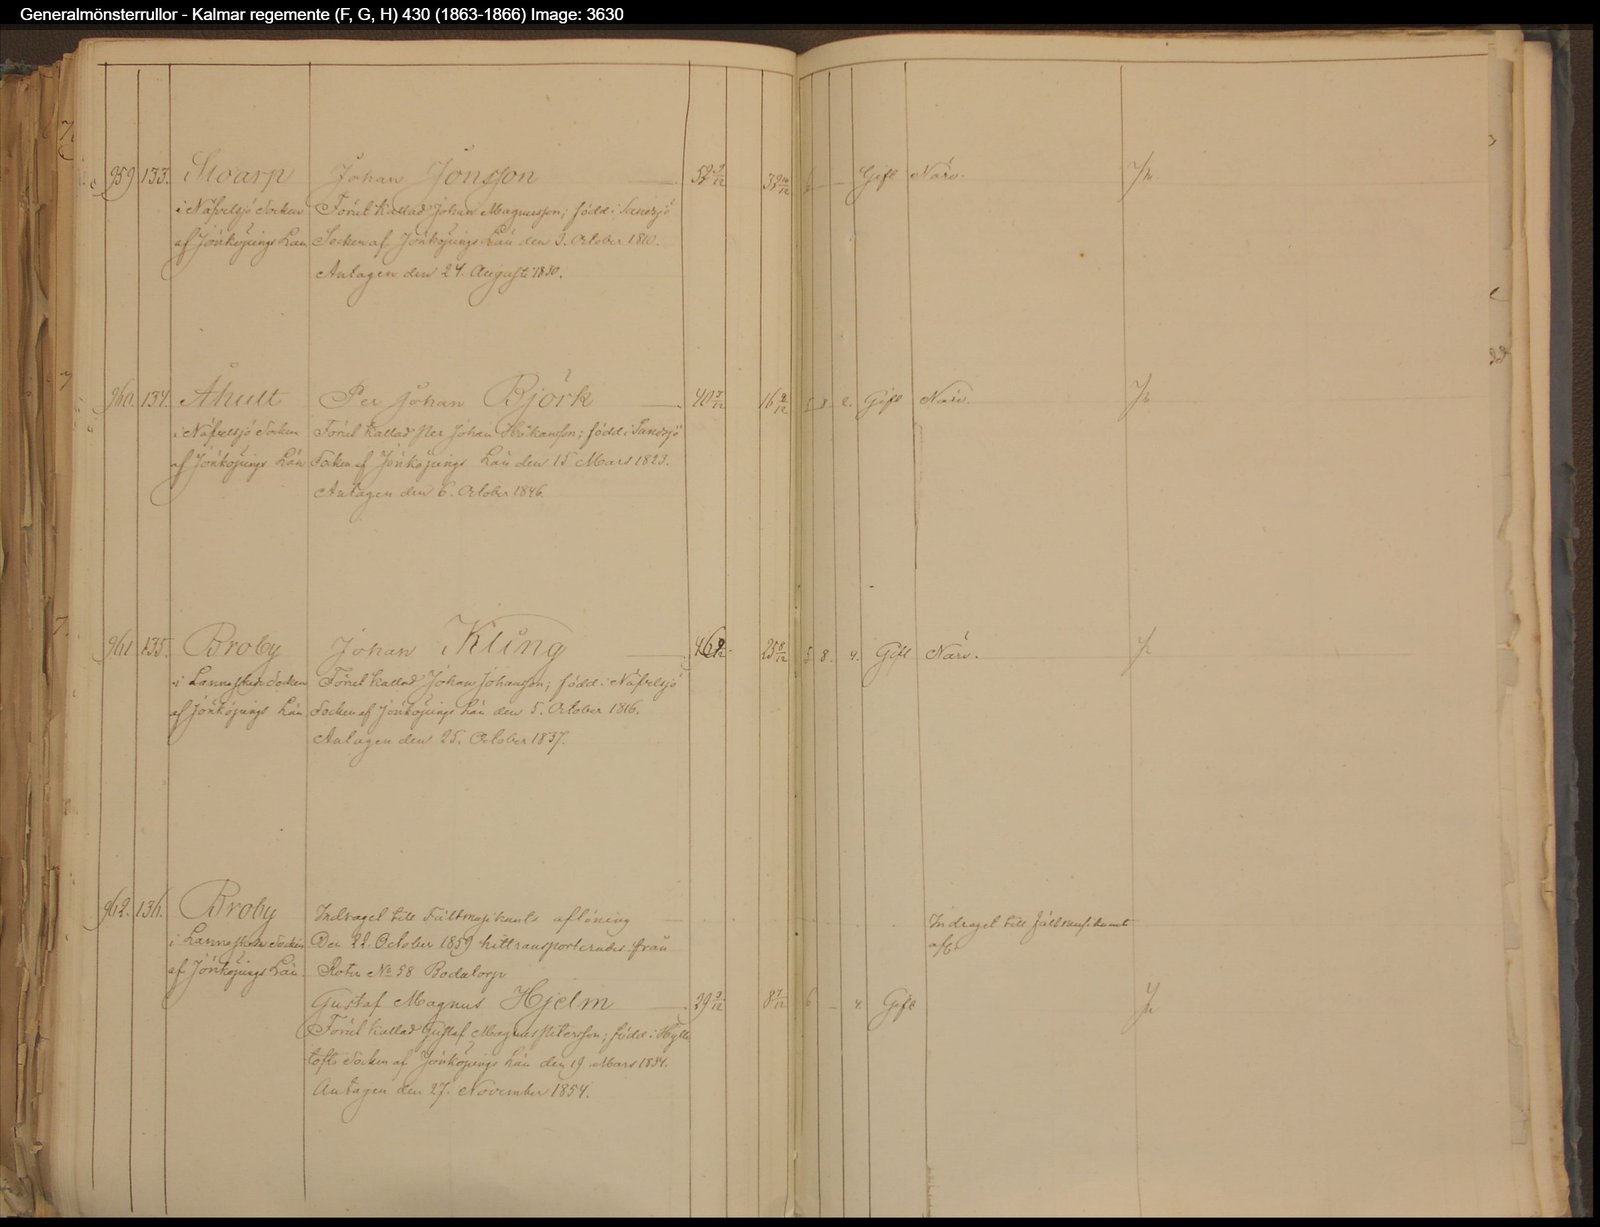 Generalmönsterrullor - Kalmar regemente (F, G, H) 430 (1863-1866) Image: 3630
959 133. Stoarp Johan Jonsson 52 9/12 32 10/12 Gift Närv.
i Näfvelsjö Socken Förut kallad Johan Magnusson; född i Sandsjö
af Jönköpings Län Socken af Jönköpings Län den 3. October 1810.
Antagen den 24. Augusti 1830.
960 134. Åhult Per Johan Björk 40 3/12 16 8/12 5 8. 2. Gift Närv.
i Näfvelsjö Socken Förut kallad Per Johan Håkansson; född i Sandsjö
af Jönköpings Län Socken af Jönköpings Län den 15 Mars 1823.
Antagen den 6. October 1846.
961 135. Broby Johan Kling 46 8/12 25 8/12 5 8. 4. Gift Närv.
i Lannaskede Socken Förut kallad Johan Johansson; född i Näfvelsjö
af Jönköpings Län Socken af Jönköpings Län den 5. October 1816.
Antagen den 25. October 1837.
962. 136. Broby Indraget till Fältmusikants aflöning Indraget till fältmusikants
i Lannaskede Socken Den 22. October 1859 hittransporterades från afl.
af Jönköpings Län Roten No 58 Bodatorp
Gustaf Magnus Hjelm 29 3/12 8 7/12 6 – 4. Gift
Förut kallad Gustaf Magnus Petersson; född i Hylle
tofte Socken af Jönköpings Län den 19 Mars 1834.
Antagen den 27. November 1854.